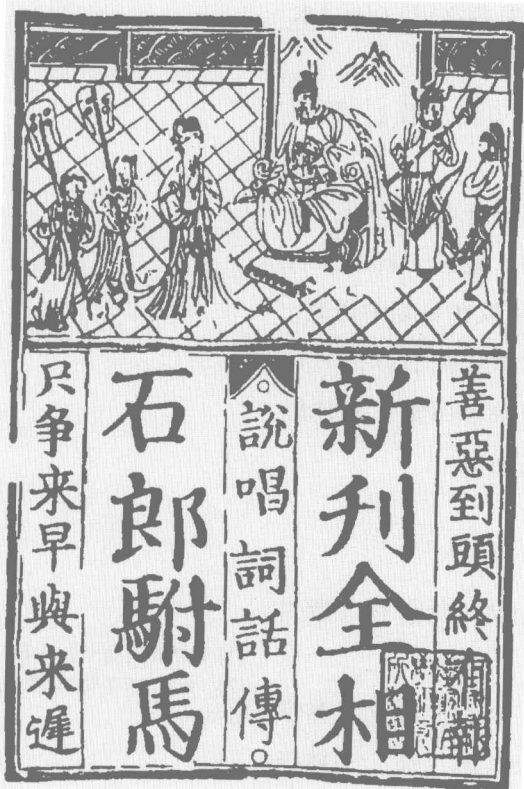 善惡到頭終有報
新刋全相
說唱詞話傳
石郎駙馬
只争来早與来遲